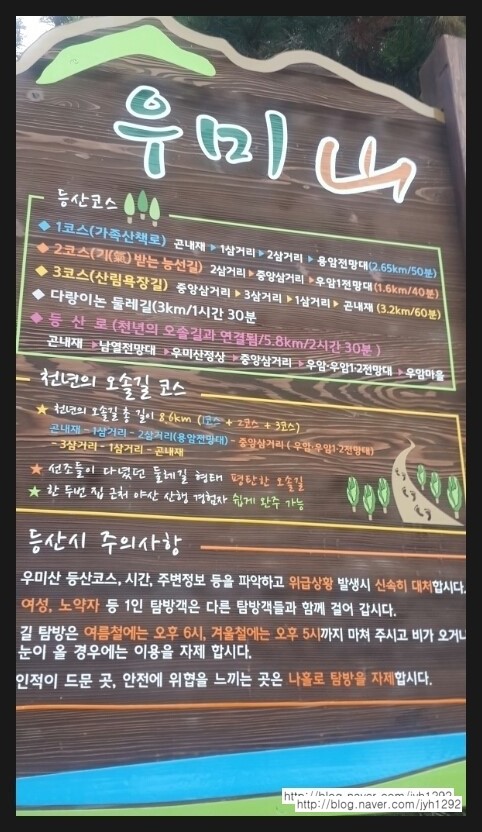 우미山
등산코스
◆ 1코스(가족산책로) 곤내재 ▶ 1삼거리 ▶ 2삼거리 ▶ 용암전망대(2.65km/50분)
◆ 2코스(기(氣) 받는 능선길) 2삼거리 ▶ 중앙삼거리 ▶ 우암1전망대(1.6km/40분)
◆ 3코스(산림욕장길) 중앙삼거리 ▶ 3삼거리 ▶ 1삼거리 ▶ 곤내재 (3.2km/60분)
◆ 다랑이논 둘레길(3km/1시간 30분
◆ 등 산 로 (천년의 오솔길과 연결됨/5.8km/2시간 30분 )
곤내재 ▶남열전망대 ▶우미산정상 ▶중앙삼거리 ▶우암·우암1·2전망대 ▶우암마을
천년의 오솔길 코스
★ 천년의 오솔길 총 길이 8.6km (1코스 + 2코스 + 3코스)
곤내재 - 1삼거리 - 2삼거리(용암전망대) - 중앙삼거리 ( 우암·우암1·2전망대)
- 3삼거리 - 1삼거리 - 곤내재
★ 선조들이 다녔던 둘레길 형태 평탄한 오솔길
★ 한 두번 집 근처 야산 산행 경험자 쉽게 완주 가능
등산시 주의사항
우미산 등산코스, 시간, 주변정보 등을 파악하고 위급상황 발생시 신속히 대처합시다.
여성, 노약자 등 1인 탐방객은 다른 탐방객들과 함께 걸어 갑시다.
길 탐방은 여름철에는 오후 6시, 겨울철에는 오후 5시까지 마쳐 주시고 비가 오거나
눈이 올 경우에는 이용을 자제 합시다.
인적이 드문 곳, 안전에 위협을 느끼는 곳은 나홀로 탐방을 자제합시다.
http://blog.naver.com/jyh1292
http://blog.naver.com/jyh1292